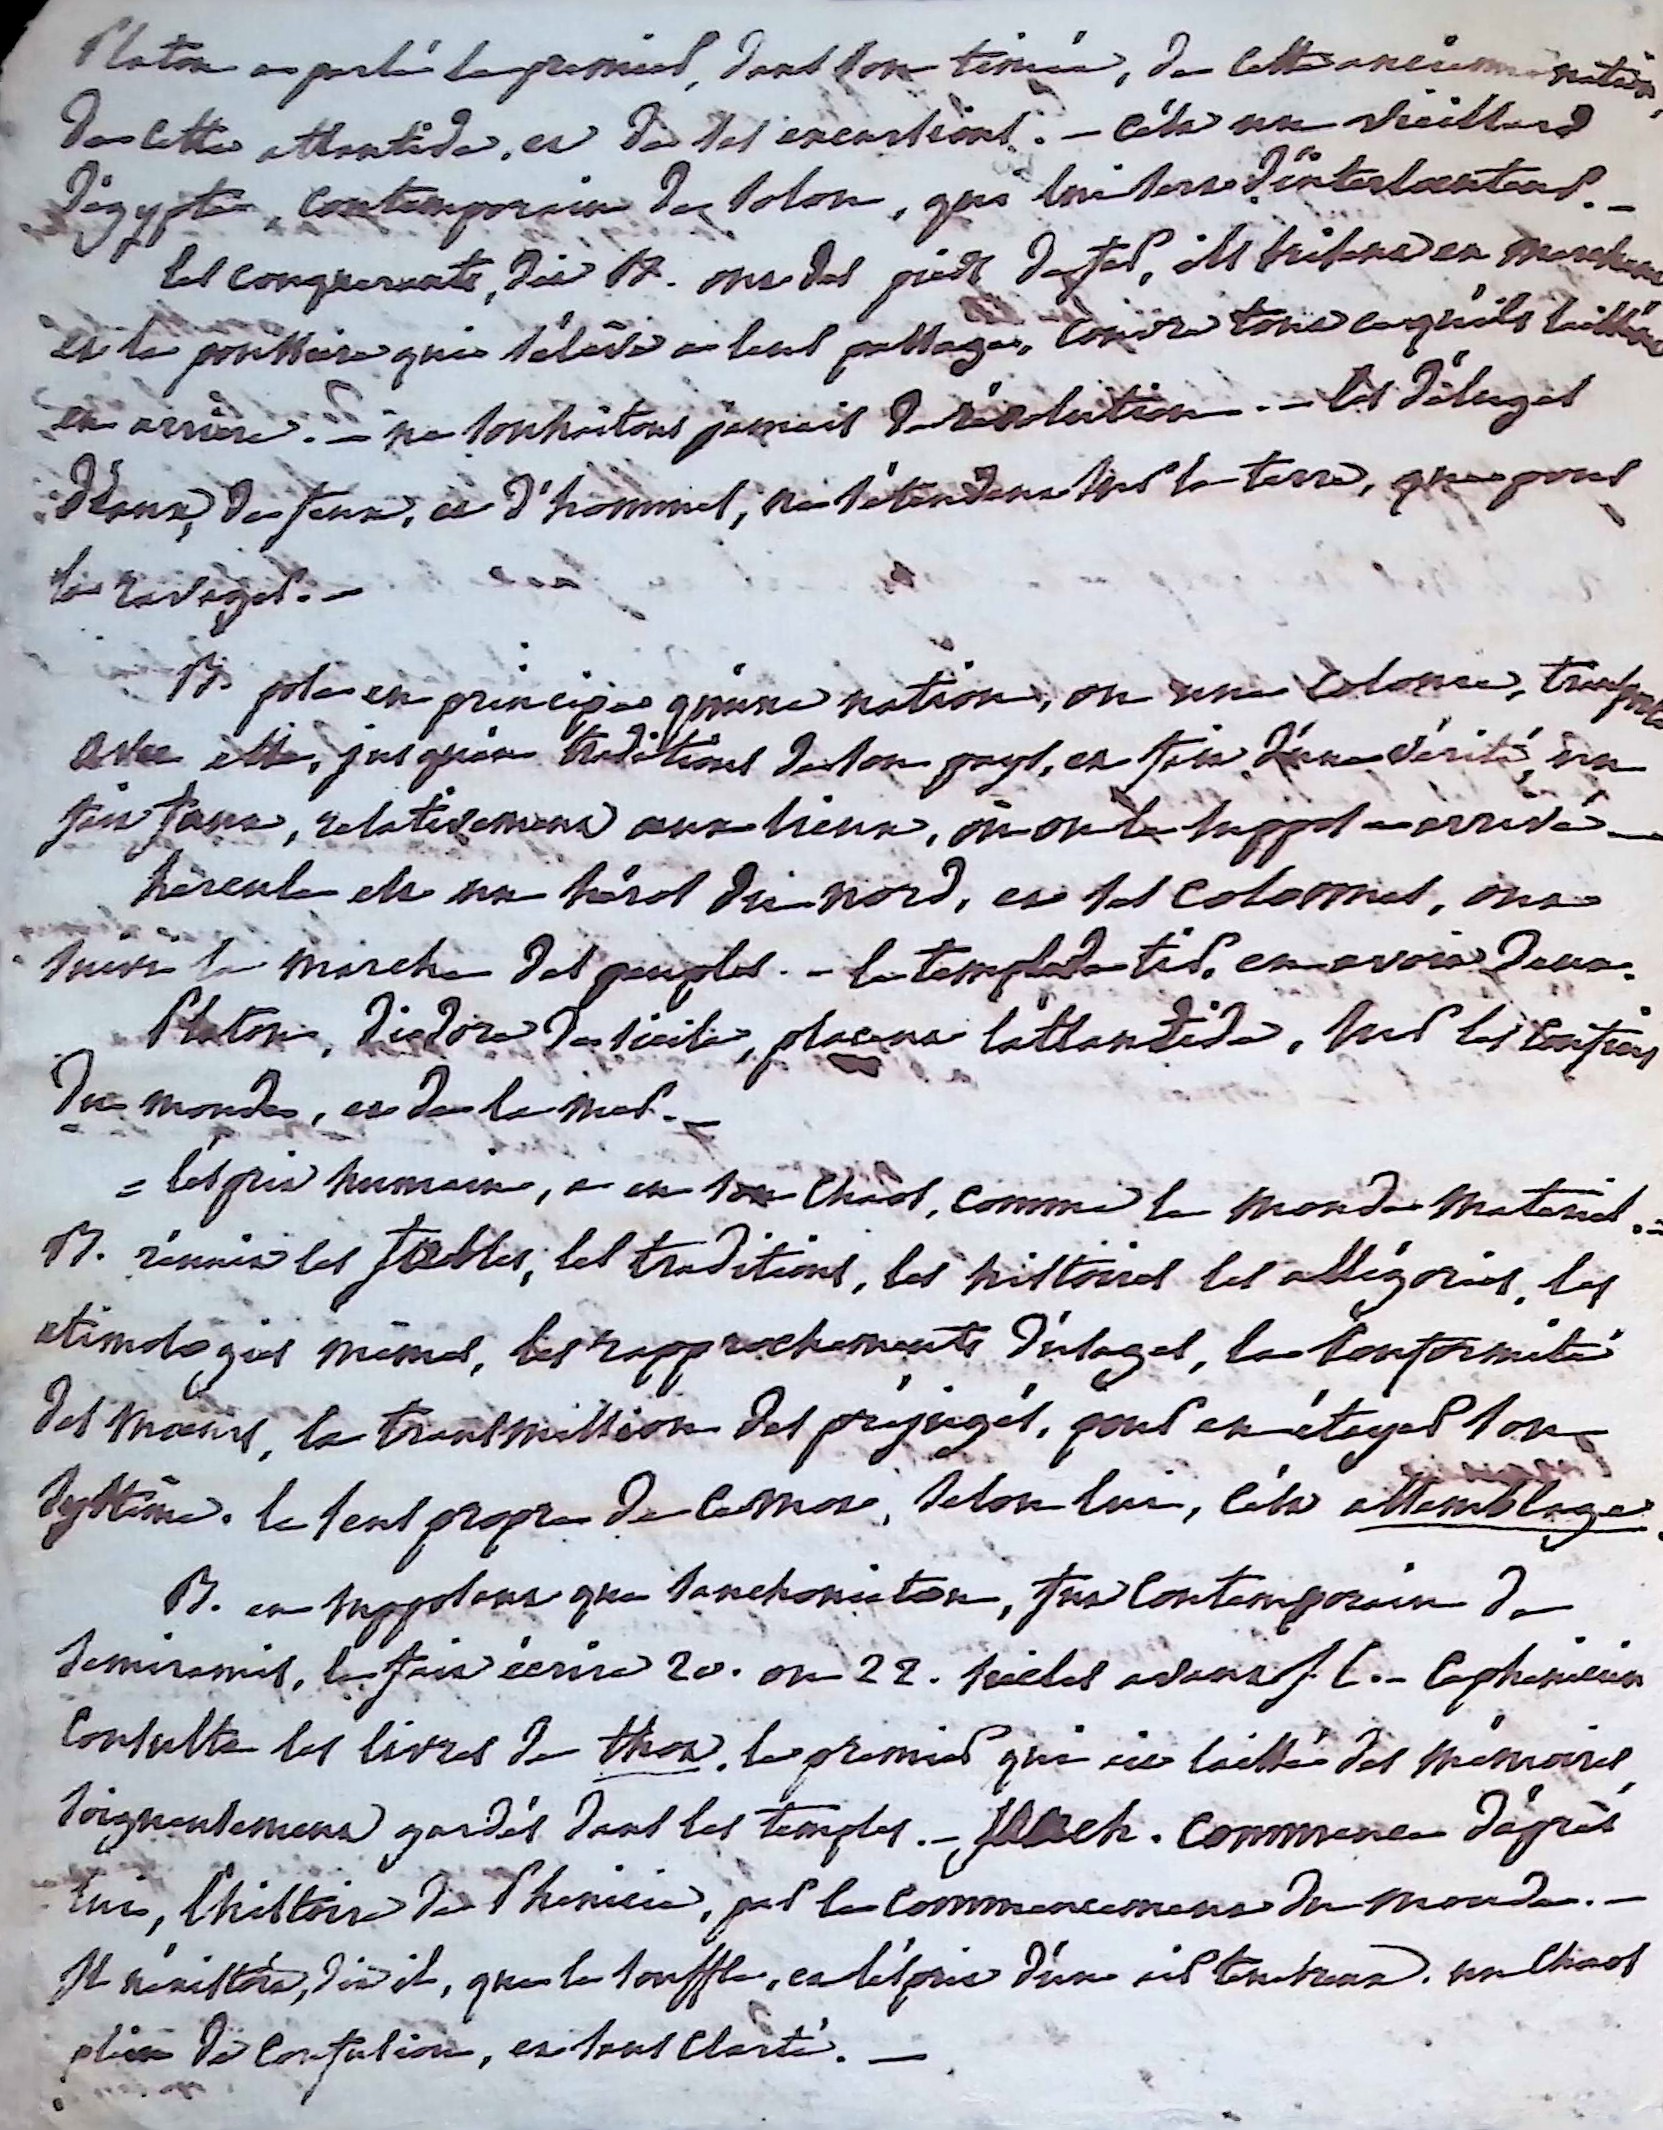 Platon a parlé le premier, dans son timée, de cette ancienne nation,
de cette atlantide, et de ses excursions. – c'est un vieillard
d'égypte, contemporain de solon, qui lui sert d'interlocuteur. –
les conquerants, dit B. ont des pieds de fer, ils brisent en marchant
et la poussière qui s'élève a leur passage, couvre tout ce qu'ils laissent
en arrière. – ne souhaitons jamais de révolution. – les déluges
d'eaux, de feux, et d'hommes, ne s'étendent sur la terre, que pour
la ravager. –
B. pose en principe qu'une nation, ou une colonie, transporte
avec elle, jusqu'aux traditions de son pays, et fait d'une vérité, un
fait faux, relativement aux lieux, où on le suppose arrivé –
hercule est un héros du nord, et ses colonnes, ont
suivi la marche des peuples. – le temple de tir, en avoit deux.
Platon, diodore de sicile, placent l'atlantide, sur les confins
du monde, et de la mer. –
= l'esprit humain, a eu son chaos, comme le monde matériel. =
B. réunit les fables, les traditions, les histoires les allégories, les
etimologies mêmes, les rapprochements d'usages, la conformité
des mœurs, la transmission des préjugés, pour en étayer son
système. le sens propre de ce mot, selon lui, c'est assemblage.
B. en supposant que sanchoniaton, fut contemporain de
semiramis, le fait écrire 20. ou 22. siècles avant J. C. – ce phenicien
consulte les livres de thot, le premier qui ait laissé des mémoires,
soigneusement gardés dans les temples. – sanch. commence d'après
lui, l'histoire de Phenicie, par le commencement du monde. –
Il n'existoit, dit il, que le souffle, et l'esprit d'un air tenebreux. un chaos
plein de confusion, et sans clarté. –